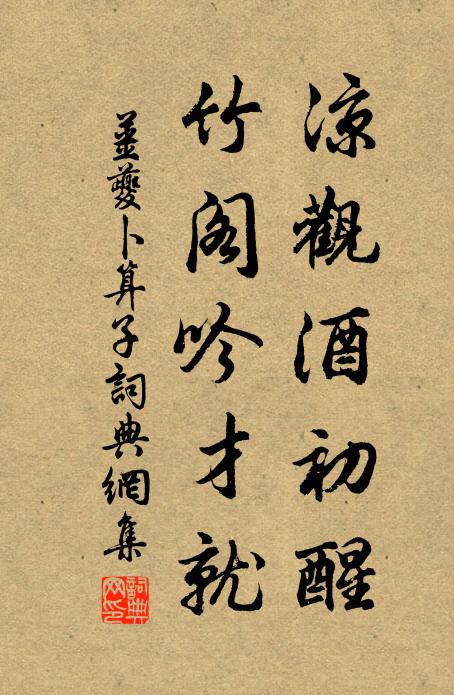 涼觀酒初醒
竹阁吟才就
姜夔卜算子詞典網集
詞典网印